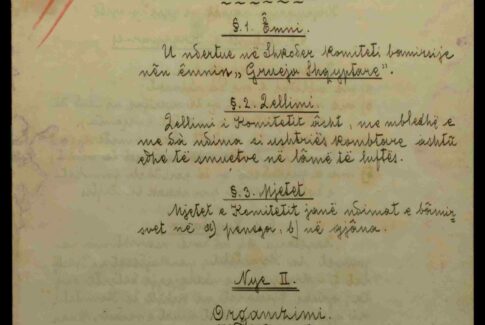 §.1. Êmni.
U ndertue në Shkoder komiteti bamirsije
nën êmnin „Grueja Shqyptare".
§.2. Qellimi.
Qellimi i Komitetit âsht, me mbledhë e
me dà ndima si ushtriës kombtare ashtû
edhe të smuetve në lâmë të luftës.
§.3. Mjetet
Mjetet e Komitetit janë ndimat e bâmir-
svet në a) penega, b) në gjâna.
Nye II.
Organizimi.